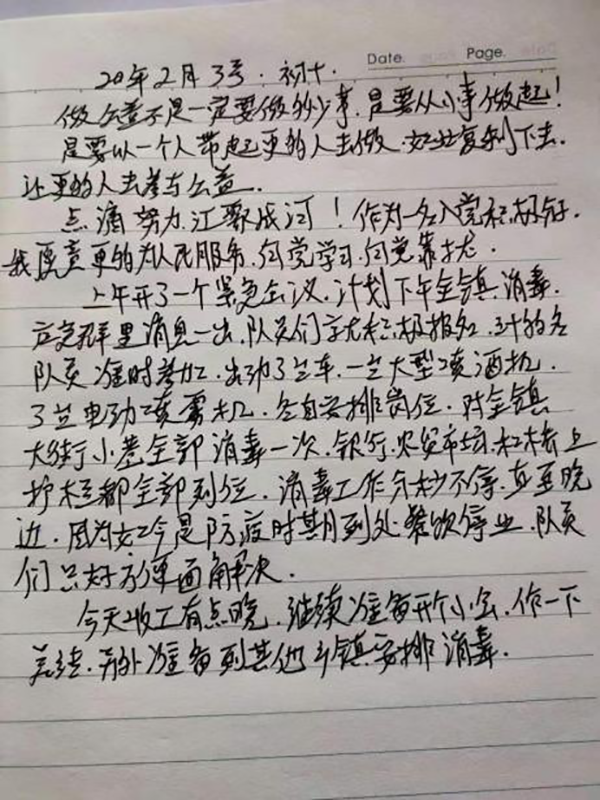 Date. Page.
20年2月3号.初十.
做公益不是一定要做的少事.是要从小事做起!
是要以一个人带起更的人去做.好比复利下去.
让更的人去参与公益.
点滴努力,江聚成河!作为一名入党积极分.
我愿意更的为人民服务.向党学习.向党靠拢.
上午开了一个紧急会议.计划下午全镇消毒.
应急群里消息一出.队员们就积极报名.
队员准时参加.出动3兰车.一兰大型喷洒机.
3兰电动喷雾机.各自安排岗位.对全镇
大街小巷全部消毒一次.银行.农贸市场.和桥上
护栏都全部到位.消毒工作分秒不停.直至晚
边.因为如今是防疫时期到处餐饮停业.队员
们只好方便面解决.
今天收工有点晚.继续准备开个小会.作一下
总结.另外准备到其他乡镇安排消毒.